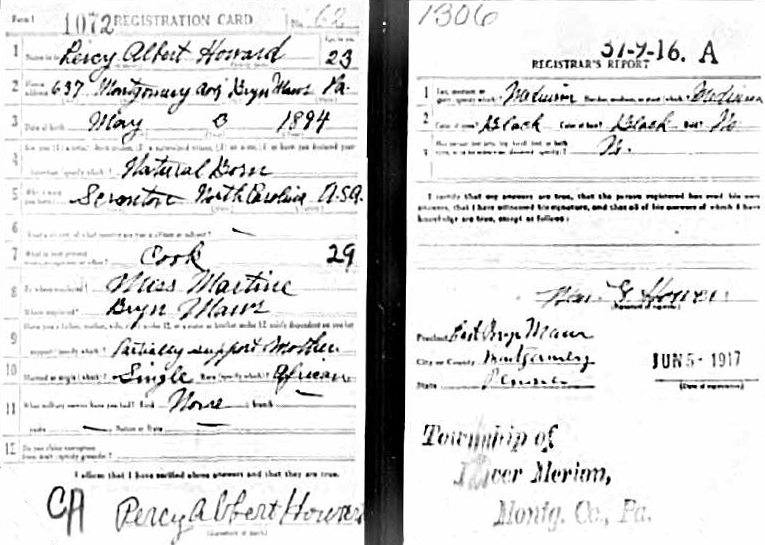 Form 1 1072 REGISTRATION CARD No. 62
1 Name in full Percy Albert Howard Age, in yrs. 23
2 Home address 637 Montgomery Ave Bryn Mawr Pa.
3 Date of birth May 1894
4 Natural Born
5 Where were you born? Scranton North Carolina U.S.A.
6
7 What is your present trade, occupation, or office? Cook 29
8 By whom employed? Miss Martine
Where employed? Bryn Mawr
9 Have you a father, mother, wife, child under 12, or a sister or brother under 12, solely dependent on you for
support (specify which)? Partially support Mother
10 Married or single (which)? Single Race (specify which)? African
11 What military service have you had? Rank None branch
years Nation or State
12 Do you claim exemption
from draft (specify grounds)?
I affirm that I have verified above answers and that they are true.
CA Percy Albert Howard
1306
37-9-16. A
REGISTRAR'S REPORT
1 Tall, medium, or short (specify which)? Medium Slender, medium, or stout (which)? Medium
2 Color of eyes? Black Color of hair? Black Bald? No
3 No.
I certify that my answers are true, that the person registered has read his own
answers, that I have witnessed his signature, and that all of his answers of which I have
knowledge are true, except as follows:
Wm. G. Howen
Precinct East Bryn Mawr
City or County Montgomery JUN 5 - 1917
State Penna (Date of registration)
Township of
Lower Merion,
Montg. Co., Pa.